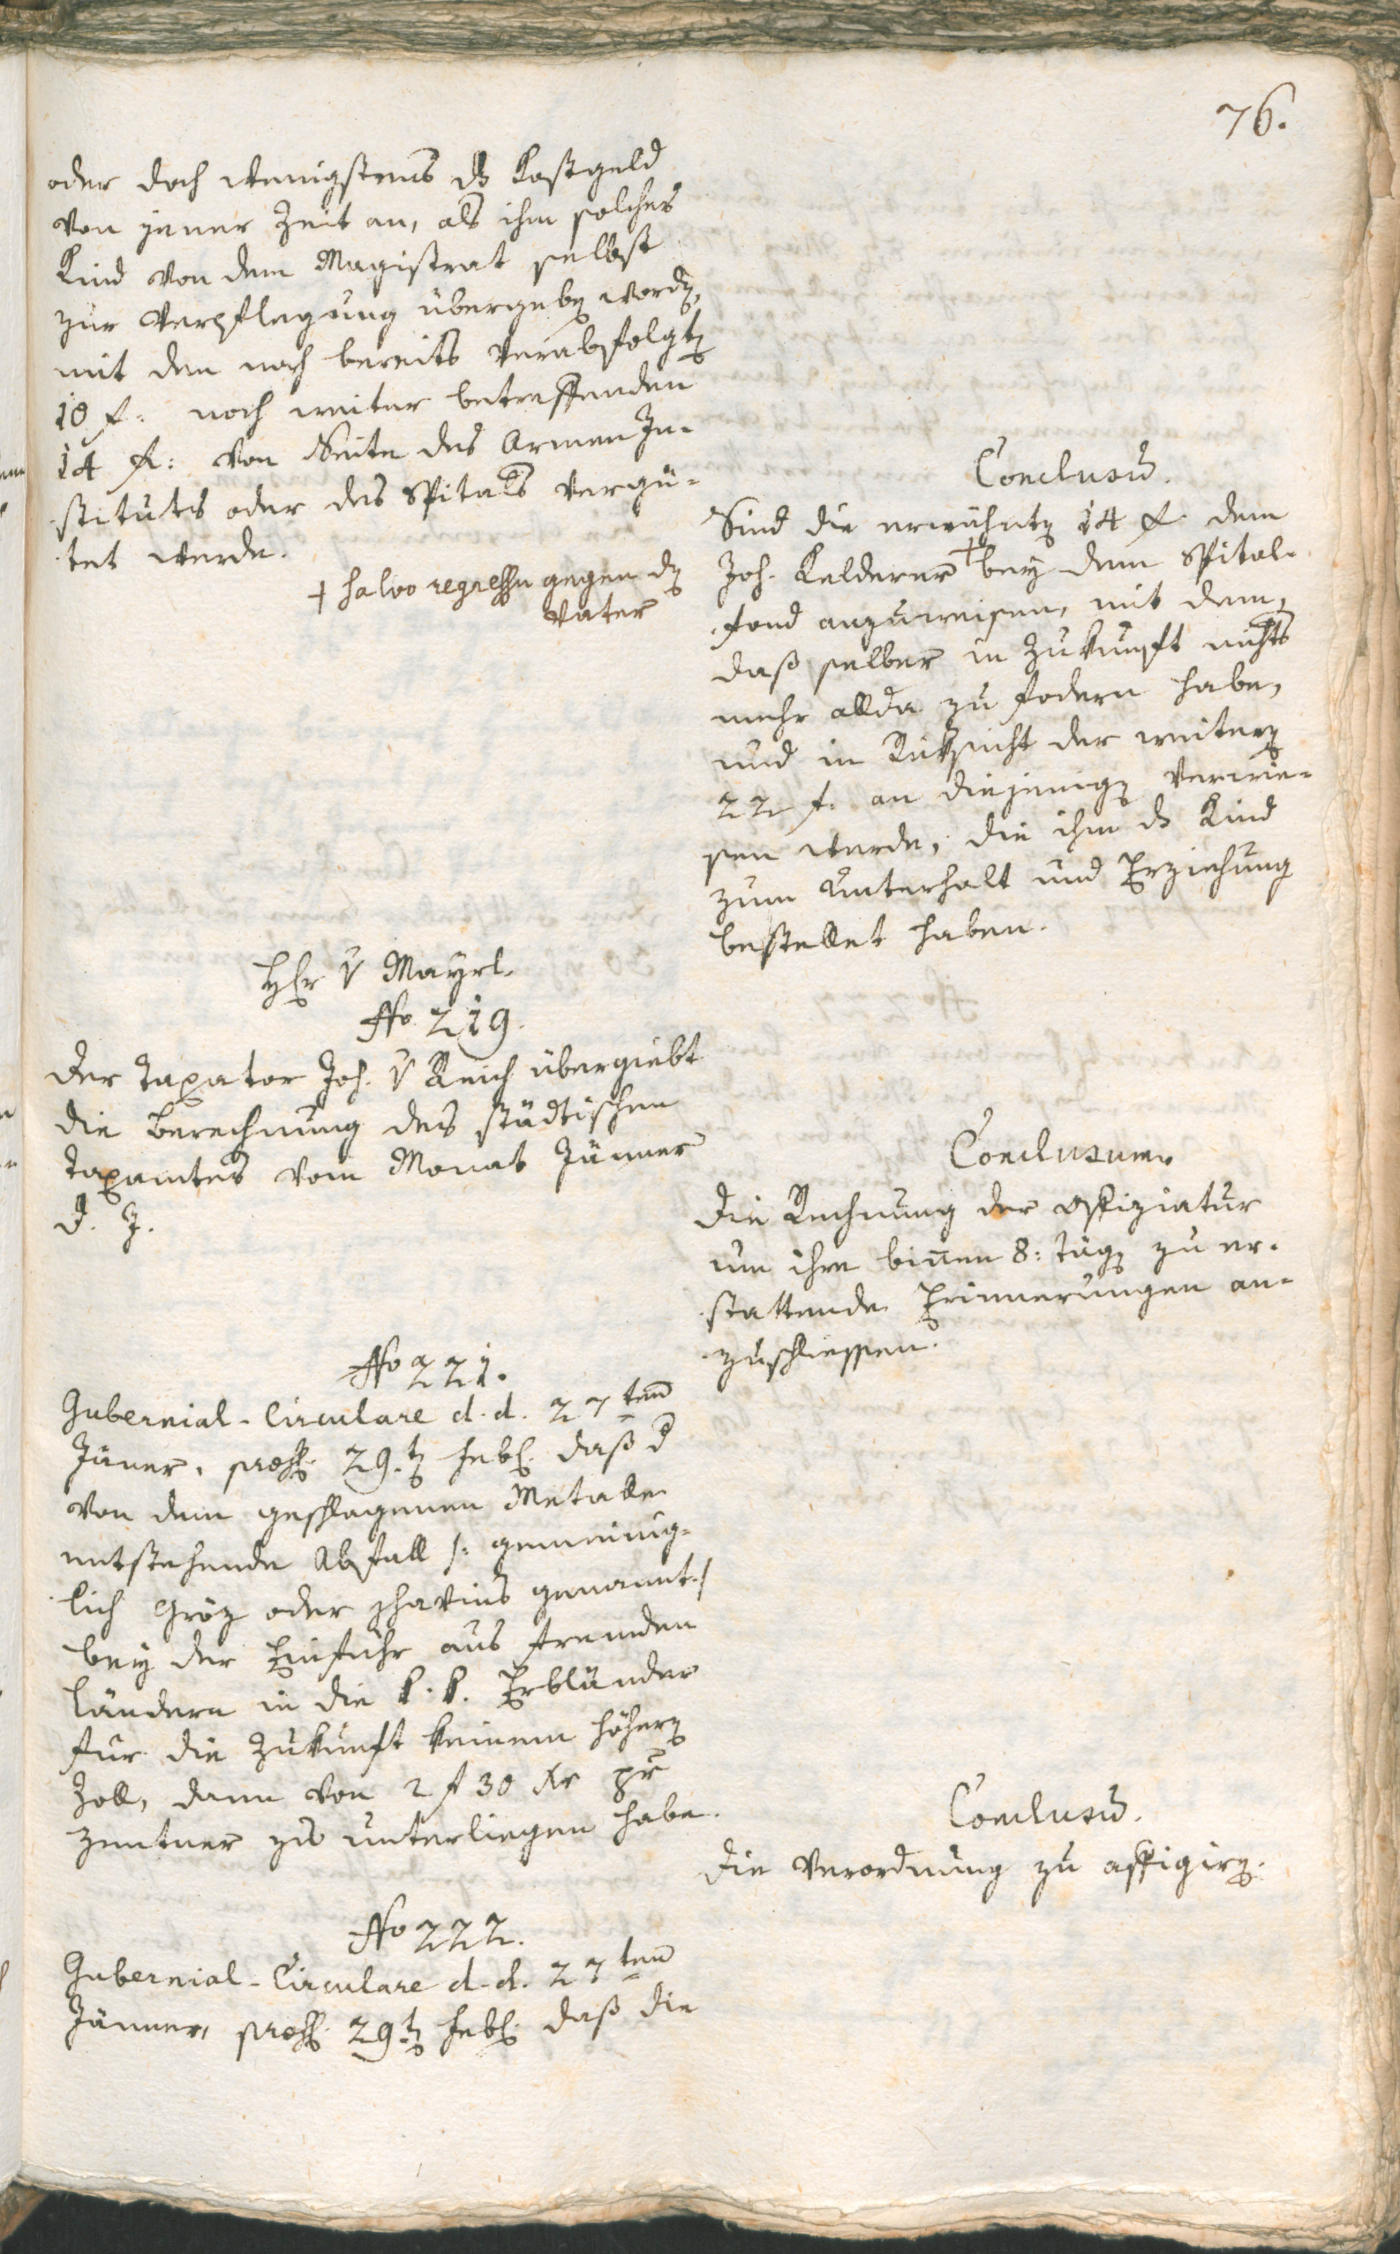 76.
oder doch wenigstens ds Kostgeld
von jener Zeit an, als ihm solches
Kind von dem Magistrat selbst
zur Verpflegung übergeben worden,
mit den noch bereits verabfolgten
10 f. noch weiter betreffenden
14 f: von Seite des Armen In-
stituts oder des Spitals vergü-
tet werde.
† salvo regressu gegen den
Vater
Conclusum.
Sind die erwähnten 14 f. dem
Joh. Kelderer † bey dem Spital-
fond anzuweisen, mit dem,
daß selber in Zukunft nichts
mehr allda zu fodern habe,
und in Rüksicht der weitern
22 f. an diejenigen verwie-
sen werde, die ihm ds Kind
zum Unterhalt und Erziehung
bestellet haben.
Hr v Mayrl.
No 219.
Der Taxator Joh. v Reich übergiebt
die Berechnung des städtischen
Taxamtes vom Monat Jänner
d. J.
Conclusum.
Die Rechnung der Offiziatur
um ihre binnen 8: Tägen zu er-
stattende Erinnerungen an-
zuschliessen.
No 221.
Gubernial-Circulare d. d. 27ten
Jäner, praes. 29.ten Feb. daß der
von dem geschlagenen Metalle
entstehende Abfall /: gemeinig-
lich Gröz oder genannt :/
bey der Einfuhr aus fremden
Ländern in die k. k. Erbländer
für die Zukunft keinem höhern
Zoll, dann von 2 f 30 Kr pr
Zentner zu unterliegen habe.
Conclusum.
Die Verordnung zu affigiren.
No 222.
Gubernial-Circulare d. d. 27ten
Jänner, praes. 29ten Feb. daß die